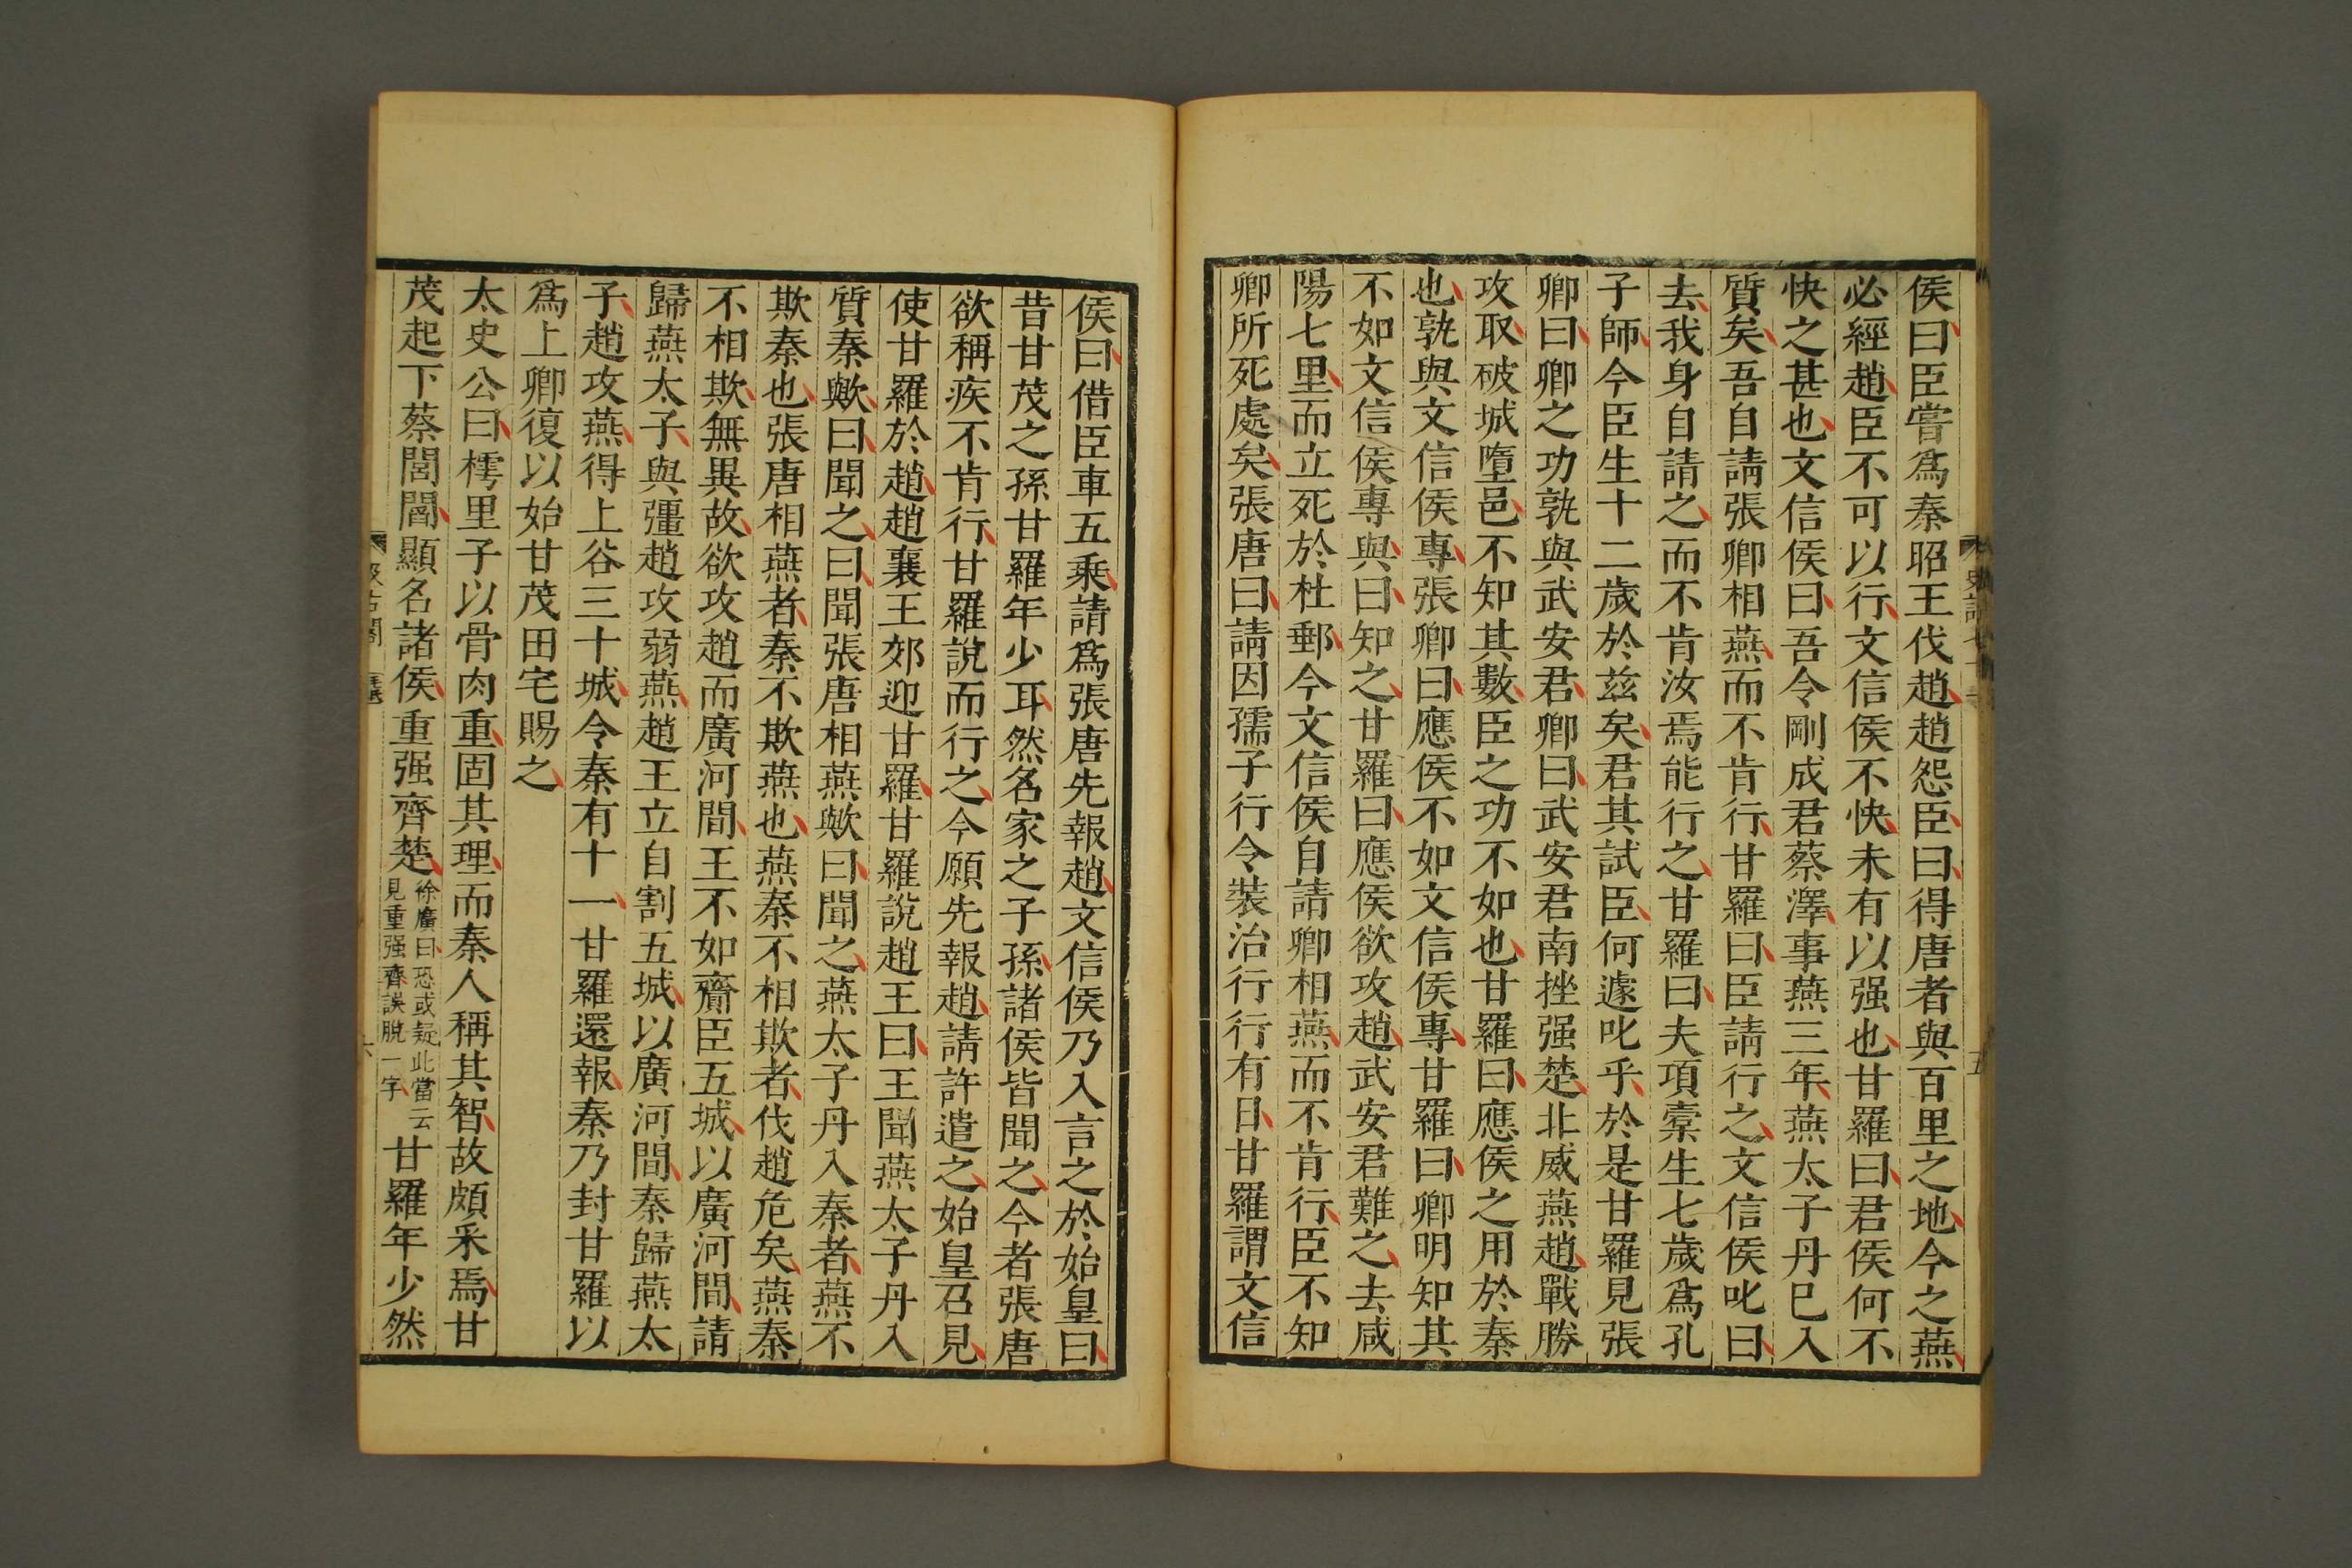 侯曰臣嘗爲秦昭王伐趙趙怨臣曰得唐者與百里之地今之燕
必經趙臣不可以行文信侯不快未有以强也甘羅曰君侯何不
快之甚也文信侯曰吾令剛成君蔡澤事燕三年燕太子丹巳入
質矣吾自請張卿相燕而不肯行甘羅曰臣請行之文信侯叱曰
去我身自請之而不肯汝焉能行之甘羅曰夫項橐生七歲爲孔
子師今臣生十二歲於兹矣君其試臣何遽叱乎於是甘羅見張
卿曰卿之功孰與武安君卿曰武安君南挫强楚北威燕趙戰勝
攻取破城墮邑不知其數臣之功不如也甘羅曰應侯之用於秦
也孰與文信侯專張卿曰應侯不如文信侯專甘羅曰卿明知其
不如文信侯專與曰知之甘羅曰應侯欲攻趙武安君難之去咸
陽七里而立死於杜郵今文信侯自請卿相燕而不肯行臣不知
卿所死處矣張唐曰請因孺子行令裝治行行有日甘羅謂文信
侯曰借臣車五乘請爲張唐先報趙文信侯乃入言之於始皇曰
昔甘茂之孫甘羅年少耳然名家之子孫諸侯皆聞之今者張唐
欲稱疾不肯行甘羅說而行之今願先報趙請許遣之始皇召見
使甘羅於趙趙襄王郊迎甘羅甘羅說趙王曰王聞燕太子丹入
質秦歟曰聞之曰聞張唐相燕歟曰聞之燕太子丹入秦者燕不
欺秦也張唐相燕者秦不欺燕也燕秦不相欺者伐趙危矣燕秦
不相欺無異故欲攻趙而廣河間王不如齎臣五城以廣河間請
歸燕太子與彊趙攻弱燕趙王立自割五城以廣河間秦歸燕太
子趙攻燕得上谷三十城令秦有十一甘羅還報秦乃封甘羅以
爲上卿復以始甘茂田宅賜之
太史公曰樗里子以骨肉重固其理而秦人稱其智故頗采焉甘
茂起下蔡閭閻顯名諸侯重强齊楚徐廣曰恐或疑此當云見重强齊誤脫一字甘羅年少然